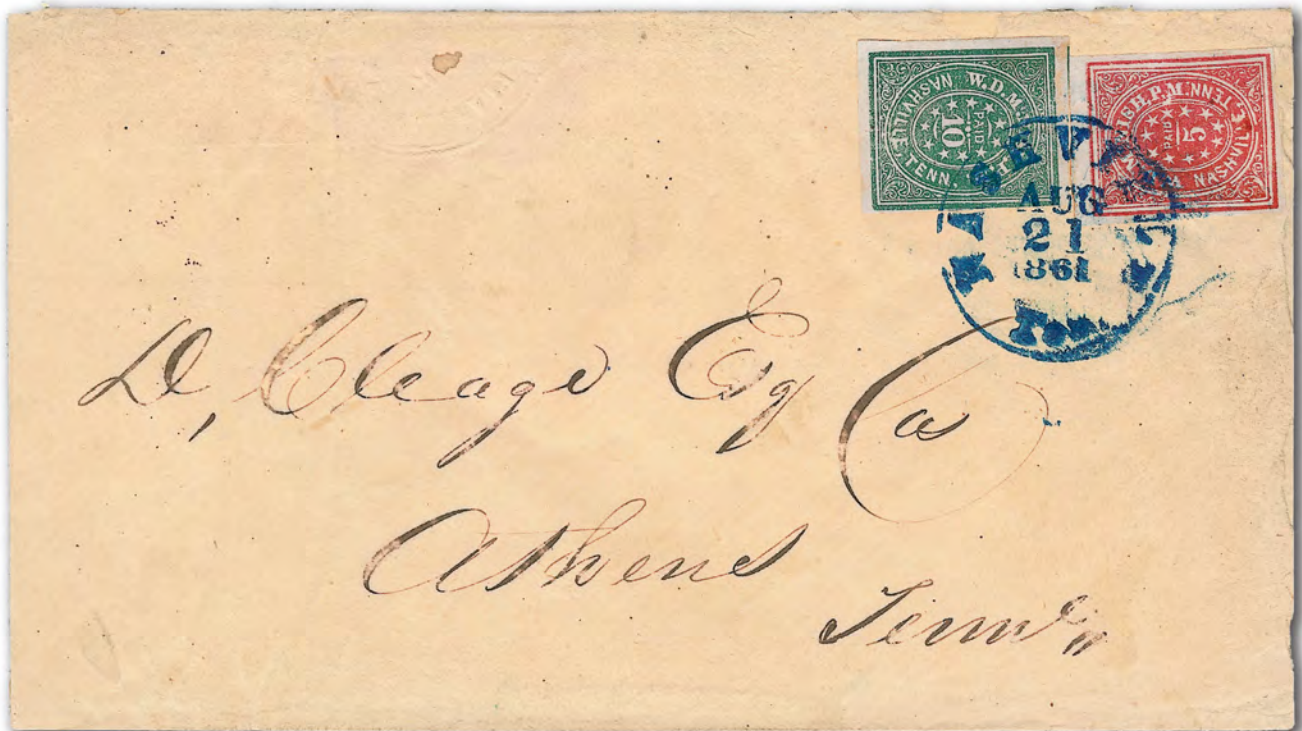 W.D.M.
NASHVILLE TENN.
PAID
10
ISH, P.M.
NASHVILLE, TENN.
PAID
5
NASHVILLE
AUG
21
1861
Ten.
D, Cleage Esq
Athens
Tenn